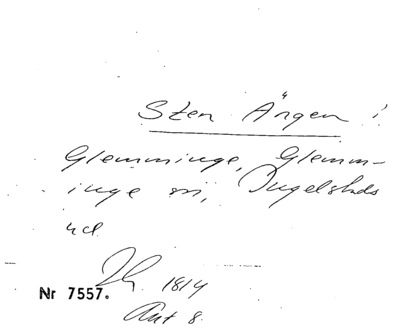 Sten Ängen i
Glemminge, Glemm-
inge sn, Ingelstads
hd
1814
Nr 7557.
Akt 8.